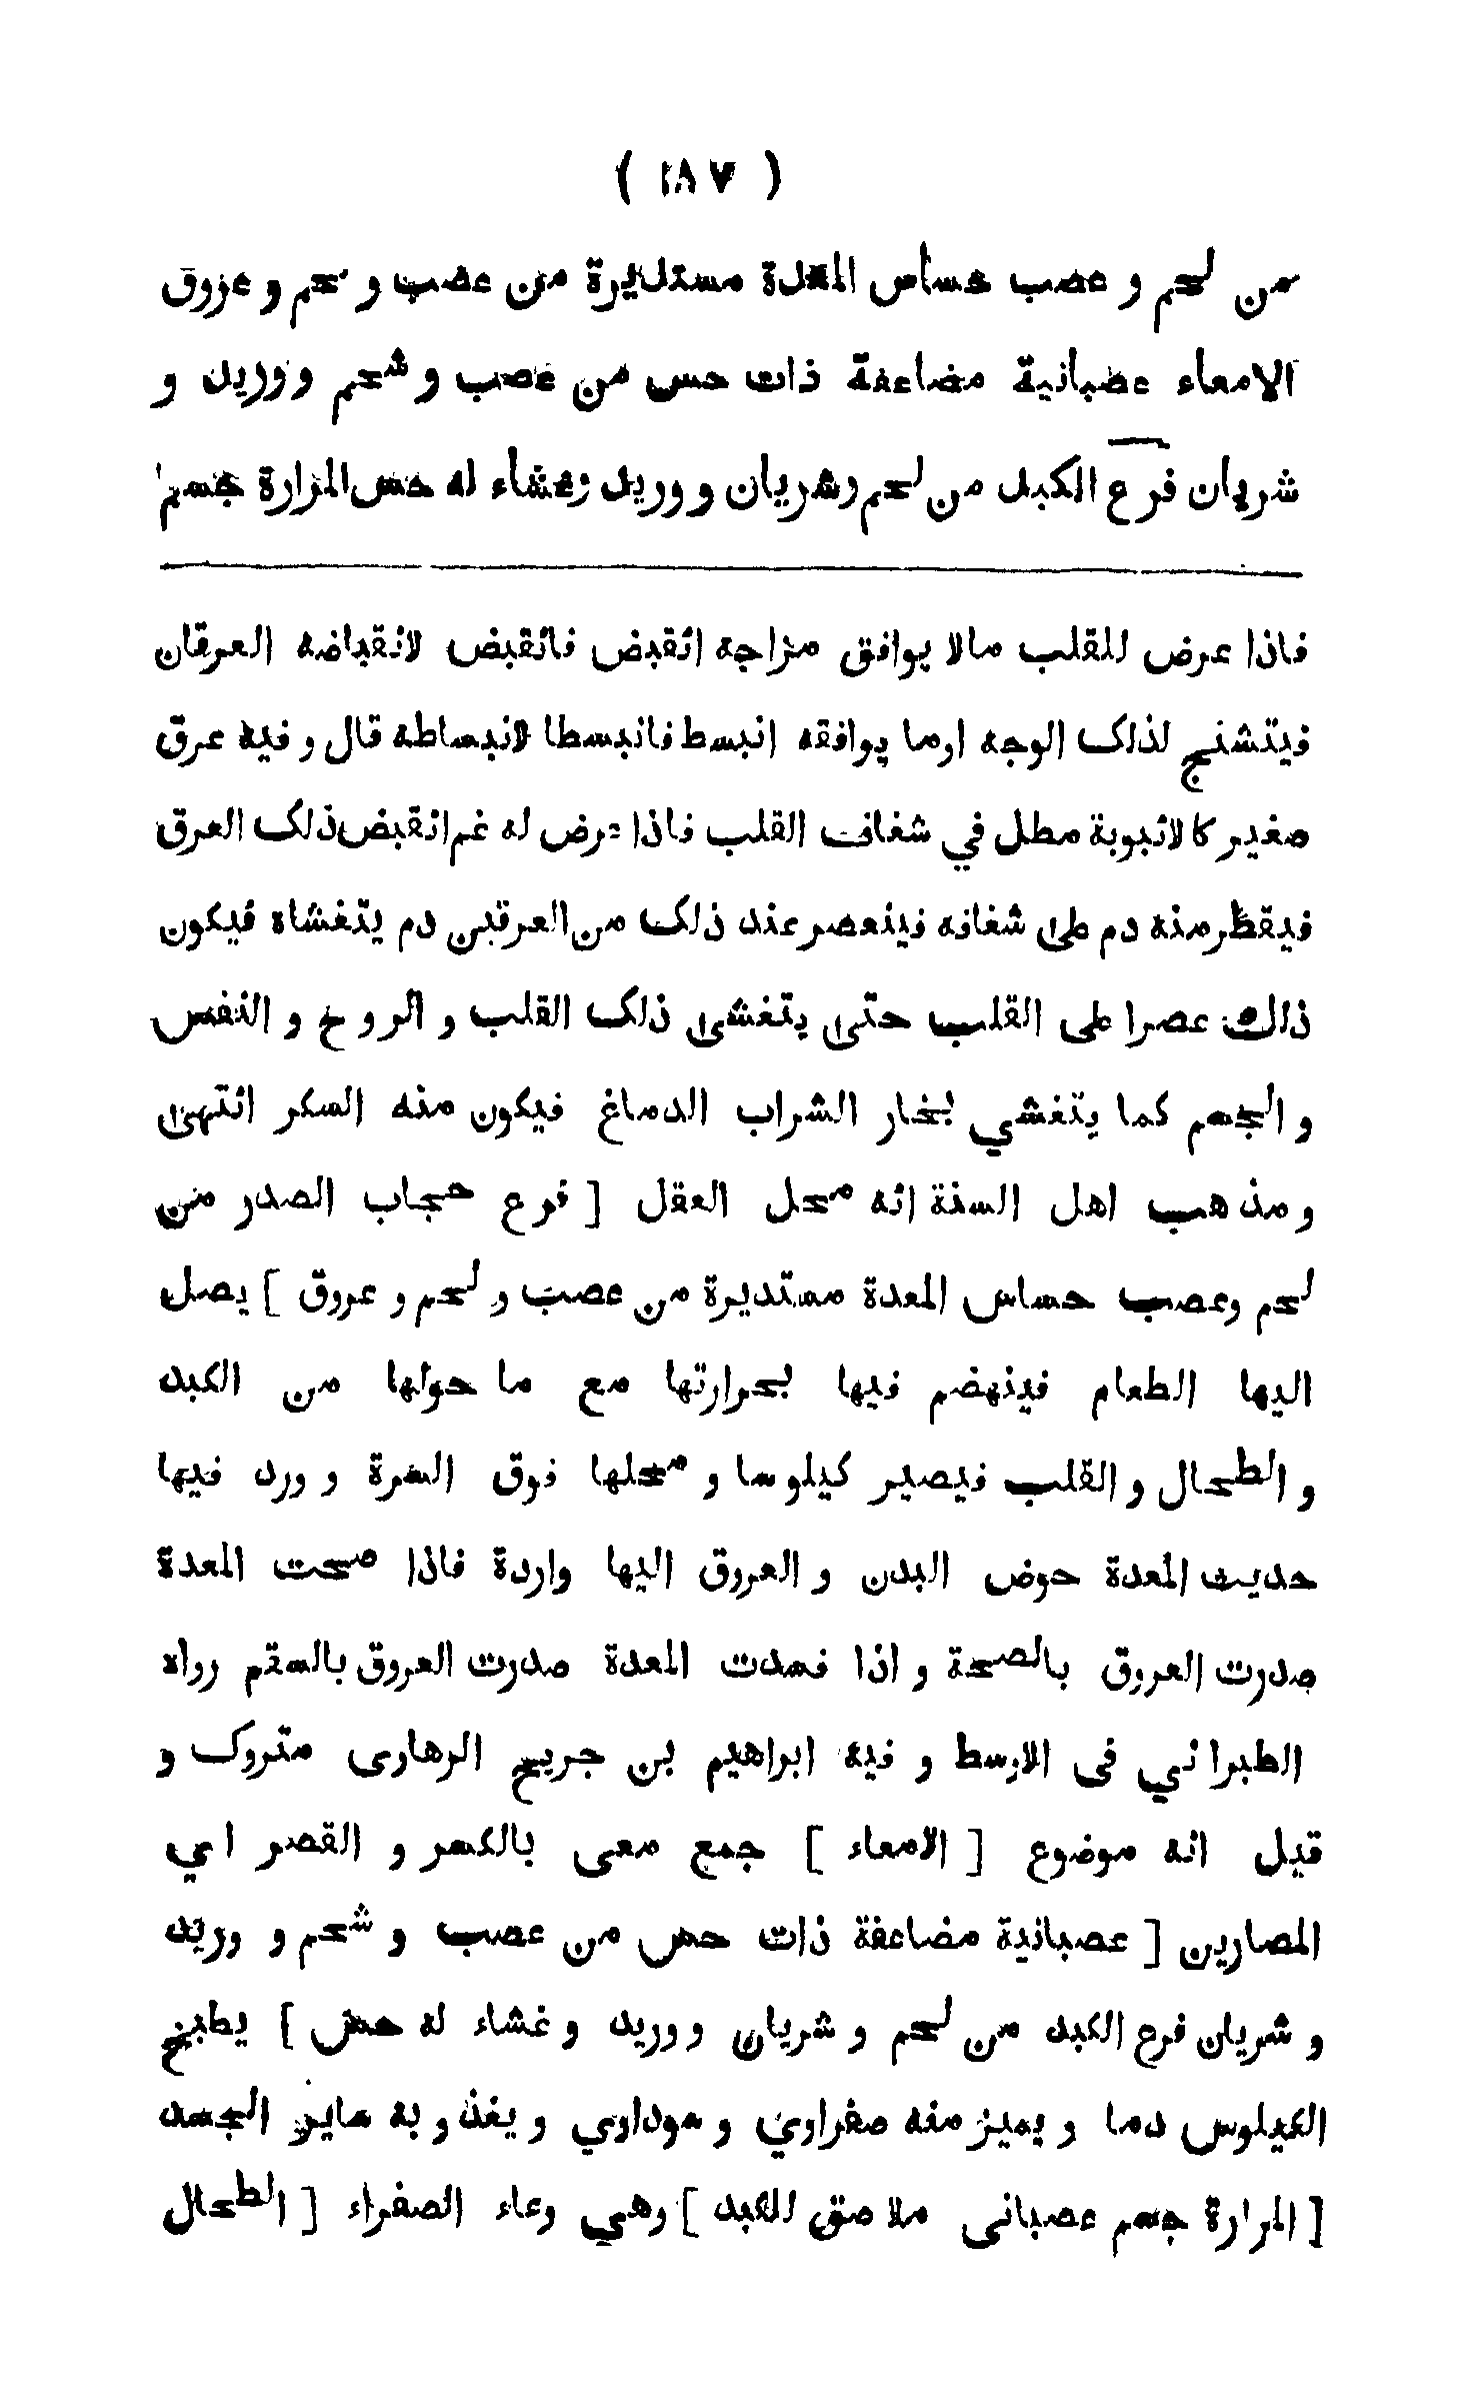 ( ١٨٧ )
من لحم و عصب حساس المعدة مستديرة من عصب و لحم و عروق
الامعاء عصبانية مضاعفة ذات حس من عصب و شحم ووريد و
شريان فرع الكبد من لحم وشريان ووريد وغشاء له حس المرارة جسم
فاذا عرض للقلب مالا يوافق مزاجه انقبض فانقبض لانقباضه العرقان
فيتشنج لذلك الوجه اوما يوافقه انبسط فانبسطا لانبساطه قال وفيه عرق
صغير كالانبوبة مطل في شغاف القلب فاذا عرض له غم انقبض ذلك العرق
فيقطر منه دم على شغافه فينعصر عند ذلك من العرقين دم يتغشاه فيكون
ذلك عصرا على القلب حتى يتغشى ذلك القلب و الروح و النفس
و الجسم كما يتغشي بخار الشراب الدماغ فيكون منه السكر انتهى
ومذهب اهل السنة انه محل العقل [ فرع حجاب الصدر من
لحم وعصب حساس المعدة مستديرة من عصب و لحم و عروق ] يصل
اليها الطعام فينهضم فيها بحرارتها مع ما حولها من الكبد
و الطحال و القلب فيصير كيلوسا و محلها فوق السرة و ورد فيها
حديث المعدة حوض البدن و العروق اليها واردة فاذا صحت المعدة
صدرت العروق بالصحة و اذا فسدت المعدة صدرت العروق بالسقم رواه
الطبراني فى الاوسط و فيه ابراهيم بن جريج الرهاوى متروك و
قيل انه موضوع [ الامعاء ] جمع معى بالكسر و القصر اي
المصارين [ عصبانية مضاعفة ذات حس من عصب و شحم و وريد
و شريان فرع الكبد من لحم و شريان ووريد وغشاء له حس ] يطبخ
الكيلوس دما و يميز منه صفراوي و سوداوي و يغذو به ساير الجسد
[ المرارة جسم عصبانى ملاصق للكبد ] وهي وعاء الصفراء [ الطحال